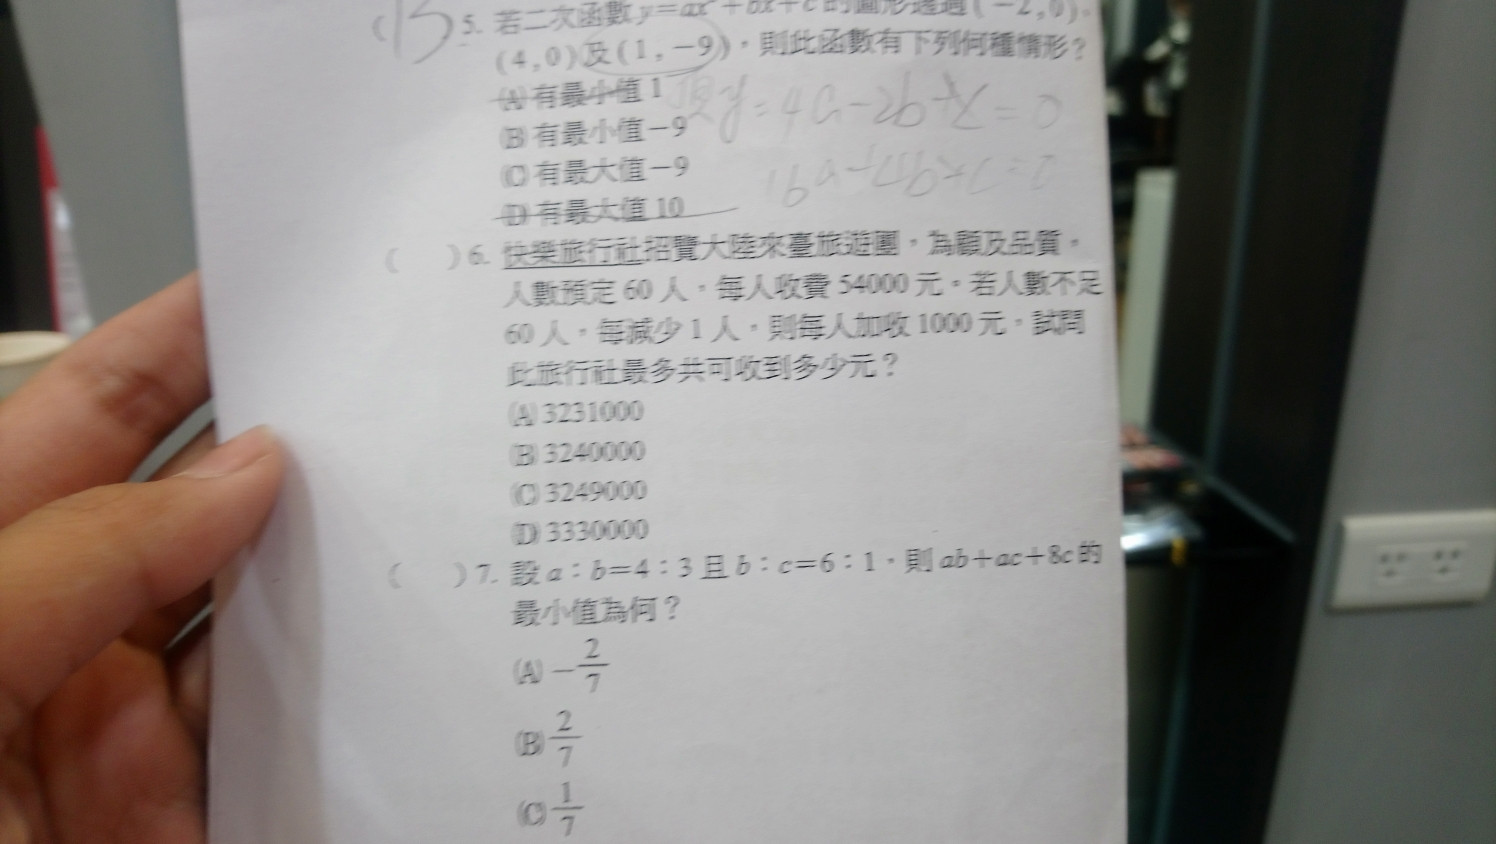 (B) 5. 若二次函數 y=ax²+bx+c 的圖形通過(-2,0)、
(4,0)及(1,-9),則此函數有下列何種情形?
(A) 有最小值 1
(B) 有最小值-9
(C) 有最大值-9
(D) 有最大值 10
y=4a-2b+c=0
( ) 6. 快樂旅行社招覽大陸來臺旅遊團,為顧及品質,
人數預定 60 人,每人收費 54000 元。若人數不足
60 人,每減少 1 人,則每人加收 1000 元,試問
此旅行社最多共可收到多少元?
(A) 3231000
(B) 3240000
(C) 3249000
(D) 3330000
( ) 7. 設 a:b=4:3 且 b:c=6:1,則 ab+ac+8c 的
最小值為何?
(A) -2/7
(B) 2/7
(C) 1/7